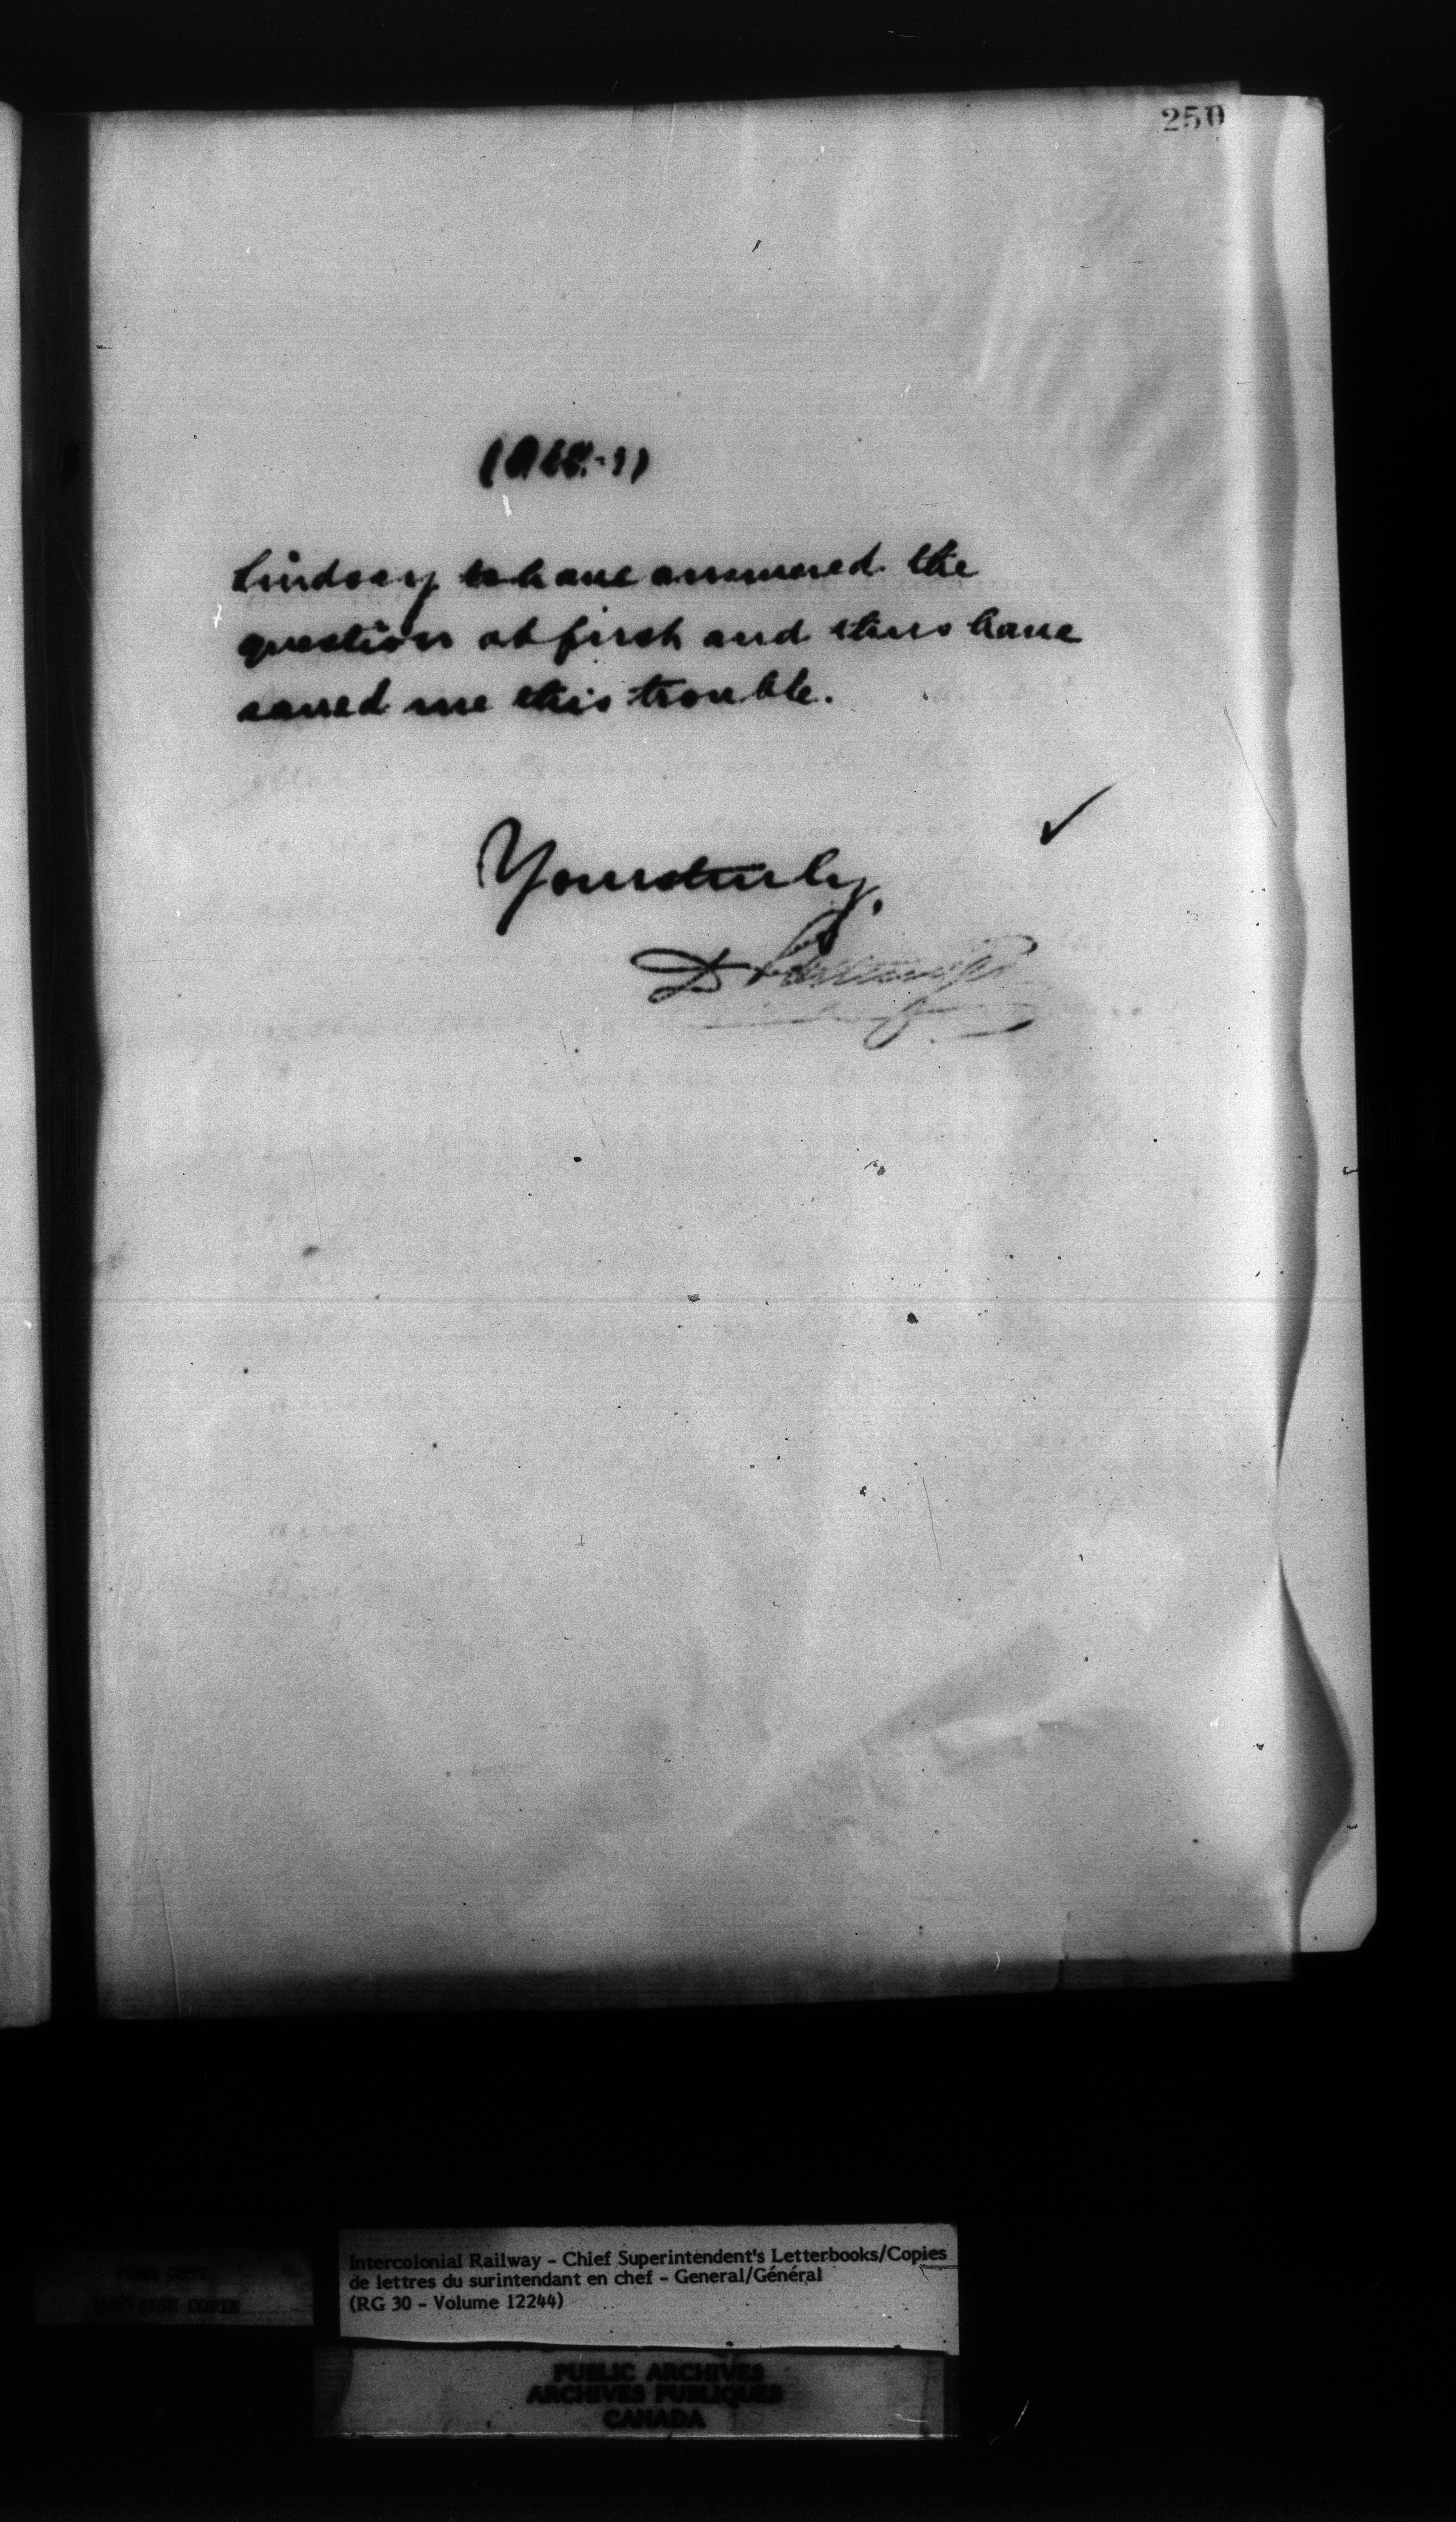 250
Lindsay to have answered the
question at first and thus have
saved me this trouble.
Yours truly,
D Pottinger
Intercolonial Railway - Chief Superintendent's Letterbooks/Copies
de lettres du surintendant en chef - General/Général
(RG 30 - Volume 12244)
POOR COPY
MAUVAISE COPIE
PUBLIC ARCHIVES
ARCHIVES PUBLIQUES
CANADA